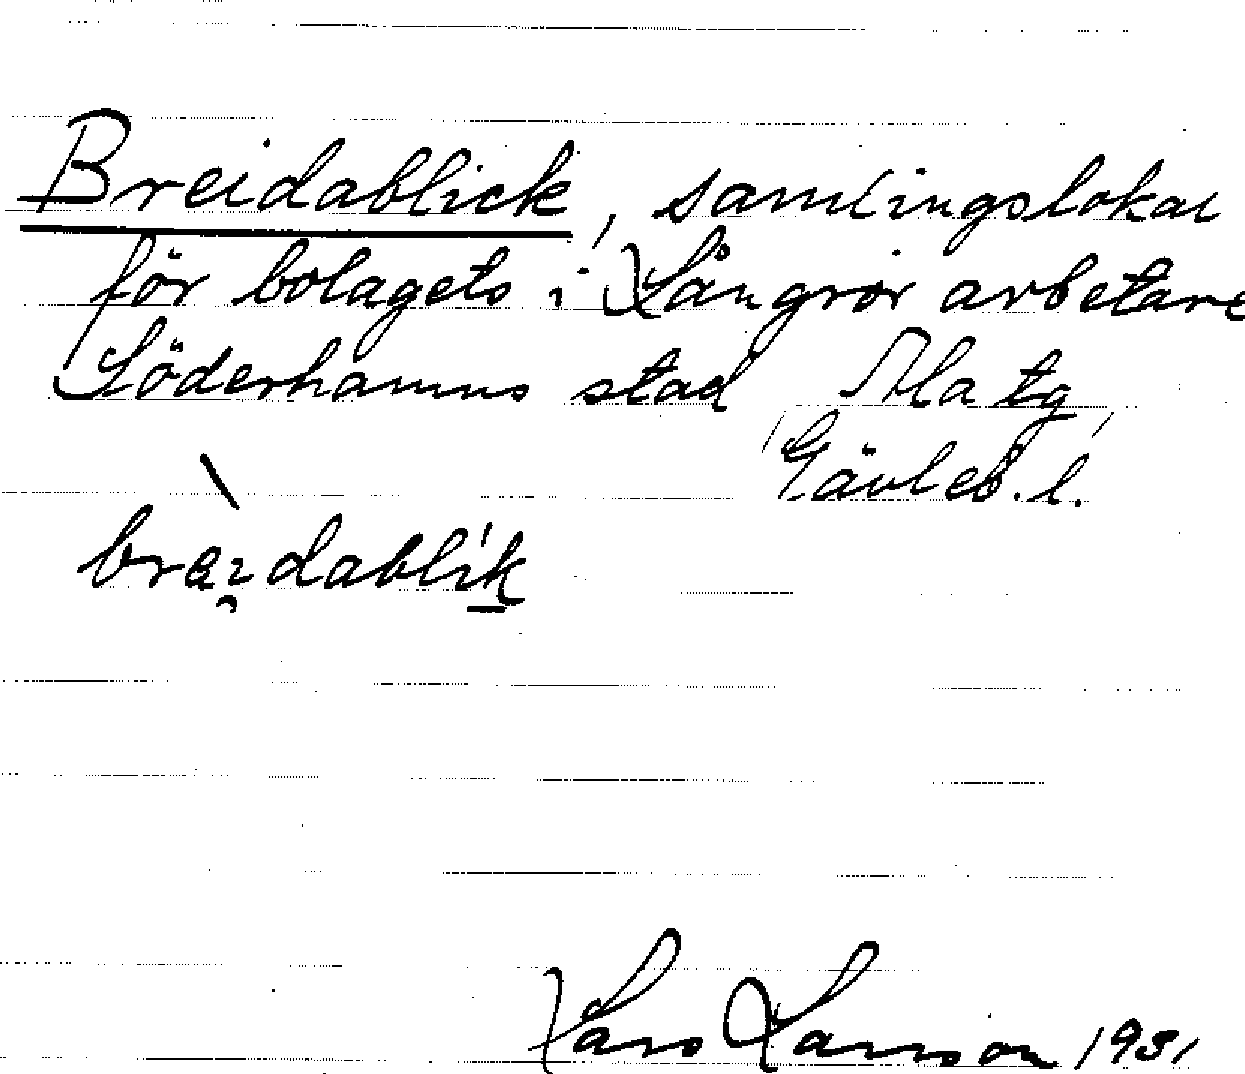 Breidablick, samlingslokal
för bolagets i Långrör arbetare
Söderhamns stad Ala tg
Gävleb. l.
Lars Larsson 1931